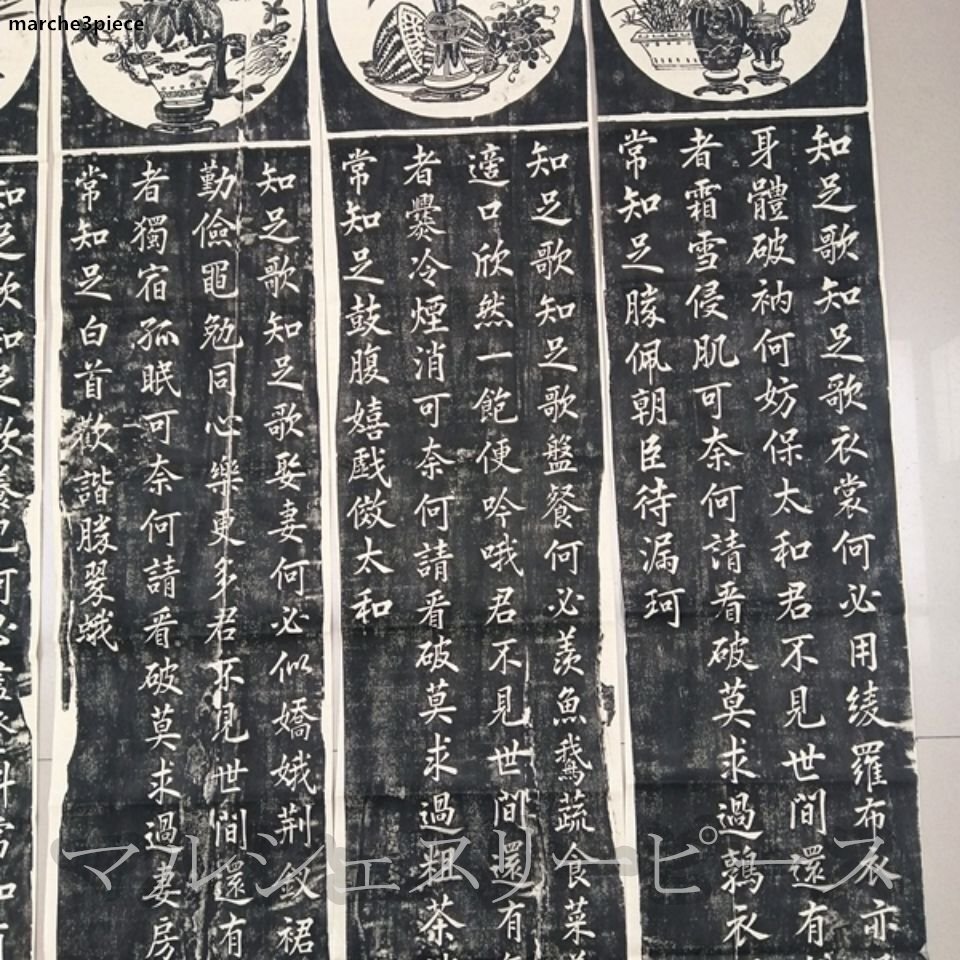 marche3piece
知足歌知足歌衣裳何必用綾羅布衣亦
身體破衲何妨保太和君不見世間還有
者霜雪侵肌可奈何請看破莫求過鶉衣
常知足勝佩朝臣待漏珂
知足歌知足歌盤餐何必羨魚鵝蔬食菜
適口欣然一飽便吟哦君不見世間還有
者爨冷煙消可奈何請看破莫求過粗茶
常知足鼓腹嬉戲儌太和
知足歌知足歌娶妻何必似嬌娥荆釵裙
勤儉黽勉同心樂更多君不見世間還有
者獨宿孤眠可奈何請看破莫求過妻房
常知足白首歡諧勝翠蛾
マルシェスリーピース